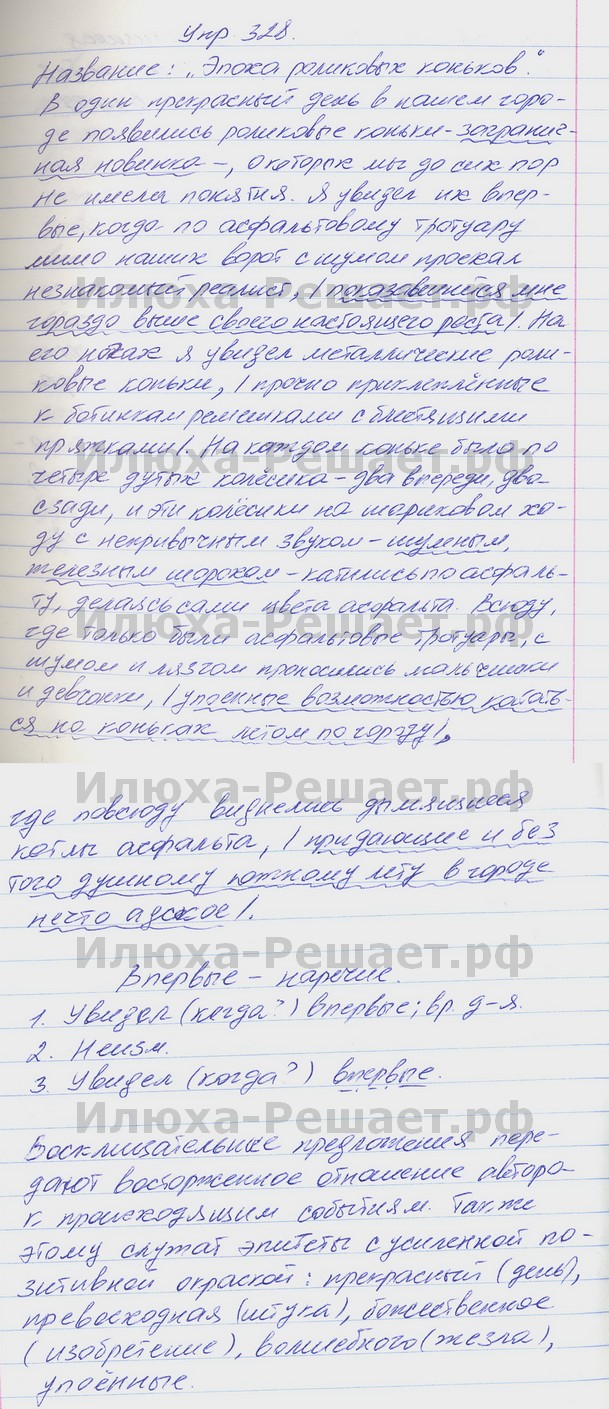 Упр. 328.
Название: „Эпоха роликовых коньков".
В один прекрасный день в нашем горо-
де появились роликовые коньки - загранич-
ная новинка -, о которых мы до сих пор
не имели понятия. Я увидел их впер-
вые, когда по асфальтовому тротуару
мимо наших ворот с шумом проехал
незнакомый реалист, / показавшийся мне
гораздо выше своего настоящего роста/. На
его ногах я увидел металлические роли-
ковые коньки, / прочно прикреплённые
к ботинкам ремешками с блестящими
пряжками/. На каждом коньке было по
четыре дутых колёсика - два впереди, два
сзади, и эти колёсики на шариковом хо-
ду с непривычным звуком - шумным,
железным шорохом - катились по асфаль-
ту, делаясь сами цвета асфальта. Всюду,
где только были асфальтовые тротуары, с
шумом и лязгом проносились мальчишки
и девчонки, / упоенные возможностью катать-
ся на коньках летом по городу/,
где повсюду виднелись дымящиеся
котлы асфальта, / придающие и без
того душному южному лету в городе
нечто адское/.
Впервые - наречие.
1. Увидел (когда?) впервые; вр. д-я.
2. Неизм.
3. Увидел (когда?) впервые.
Восклицательные предложения пере-
дают восторженное отношение автора
к происходящим событиям. Также
этому служат эпитеты с усиленной по-
зитивной окраской: прекрасный (день),
превосходная (штука), божественное
(изобретение), волшебного (жезла),
упоённые.
Илюха-Решает.рф
Илюха-Решает.рф
Илюха-Решает.рф
Илюха-Решает.рф
Илюха-Решает.рф
Илюха-Решает.рф
Илюха-Решает.рф